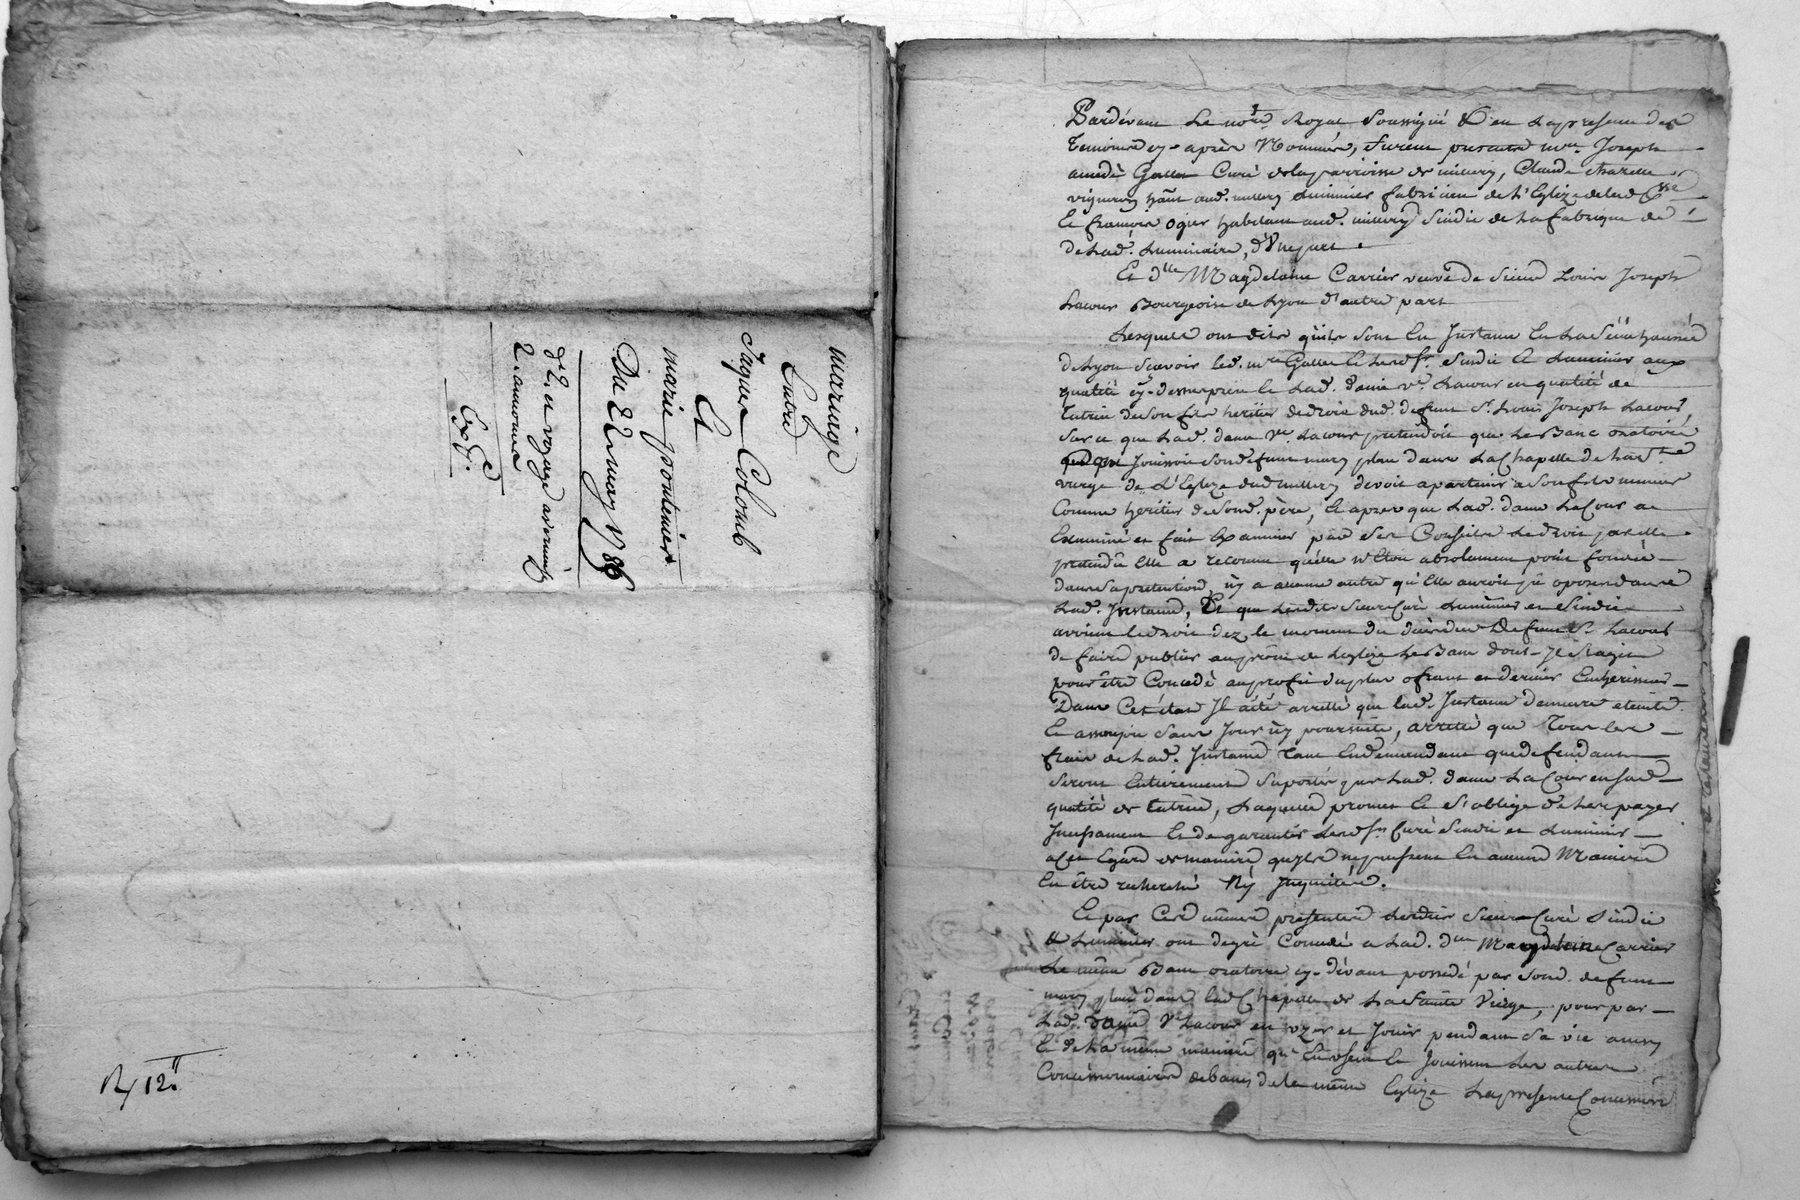 mariage
Entre
Jaques Colomb
Et
marie pontenier
Du 22 may 1786
d'2. et voyage
2. annonce
Exp.
R/ 12
Pardevant Le notre. Royal Soussigné & en la presence des
temoins cy-après Nommés, furent presents mre. Joseph
amedé Curé de la parroisse de millery, Claude
vigneron hânt aud. millery Luminier fabricien de L'Eglize dud.
Et francois ogier habitant aud. millery Sindic de La fabrique de
de Lad. Luminaire, d'Une part.
Et dlle Magdelaine Carrier veuve de Sieur Louis Joseph
Lacour Bourgeois de Lyon d'autre part
Lesquels ont dits qu'ils sont En Instance En La Sénéchaussée
de Lyon Scavoir led. mre Et Lesd. srs. Sindic & Luminier aux
qualité cy-dessus prise Et Lad. dame ve. Lacour en qualité de
tutrice de son fils heritier de droit dud. defunt Sr. Louis Joseph Lacour,
Sur ce que Lad. dame ve. Lacour pretendoit que Le Banc oratoire
Jouissoit Son defunt mary placé dans La Chapelle de La Ste
vierge de L'Eglize dud millery devoit apartenir a Son fils mineur
Comme heritier de Sond. père, Et apres que Lad. dame LaCour a
Examiné et fait Examiner par Ses Conseils Le droit par elle
pretendû Elle a reconnu quelle n'Etoit absolument point fondée
dans Sa pretention, ny a aucune autre qu'Elle auroit pû oposer dans
Lad. Instance, Et que Lesdits Sieurs Curé Luminier et Sindic
avoient le droit dez le moment du décès du Defunt Sr. Lacour
de faire publier au prône de Leglize Le Banc dont Il S'agit
pour être Concedé au profit du plus ofrant et dernier Encherisseur
Dans Cet état Il a été arretté que lad. Instance demeure eteinte
Et assoupie Sans Jour ny poursuite, arretté que Tous les
frais de Lad. Instance tant En demendant que defendant
Seront Entierement Suportés par Lad. dame La Cour en Sad.
qualité de tutrice, Laquelle promet Et S'oblige de Les payer
Incessament Et de garantir Lesd. srs. Curé Sindic et Luminier
a Cet Egard de maniere qu'ils ne puissent En aucune Maniere
En être recherché Ny Inquietés.
Et par Ces mêmes présentes Lesdits Sieurs Curé Sindic
& Luminier ont degré Concedé a Lad. dme Magdelaine Carrier
Le même Banc oratoire cy-dévant possedé par Sond. defunt
mary placé dans Lad Chapelle de La Sainte Vierge, pour par
Lad. dame ve Lacour en uzer et Jouir pendant Sa vie
Et de La même maniere qu'En usent Et Jouissent Les autres
Concessionnaires de bancs de la même Eglize La presente Concession